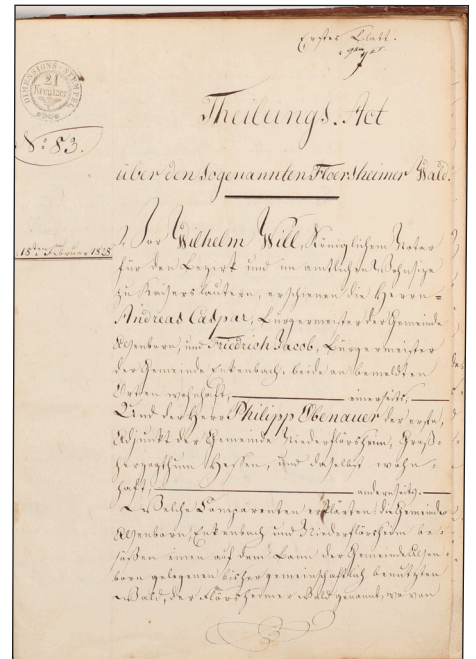 Erstes Blatt.
DIMENSIONS-STEMPEL
21
Kreutzer
N.º 83.
Theilungs-Act
über den sogenannten Floersheimer Wald.
18ten Februar 1828
Vor Wilhelm Will, Königlichem Notar
für den Bezirk und im amtlichen Wohnsitze
zu Kaiserslautern, erschienen die Herrn
Andreas Caspar, Bürgermeister der Gemeinde
Alsenborn, und Friedrich Jacob, Bürgermeister
der Gemeinde Enkenbach, beide an bemeldten
Orten wohnhaft, einerseits,
Und der Herr Philipp Obenauer der erste,
Adjunkt der Gemeinde Niederflörsheim, Groß-
herzogthum Hessen, und daselbst wohn-
haft, anderseits.
Welche Comparenten erklärten: die Gemeinden
Alsenborn, Enkenbach und Niederflörsheim be-
säßen einen auf dem Bann der Gemeinde Alsen-
born gelegenen bisher gemeinschaftlich benutzten
Wald, der Flörsheimer Wald genannt, wovon